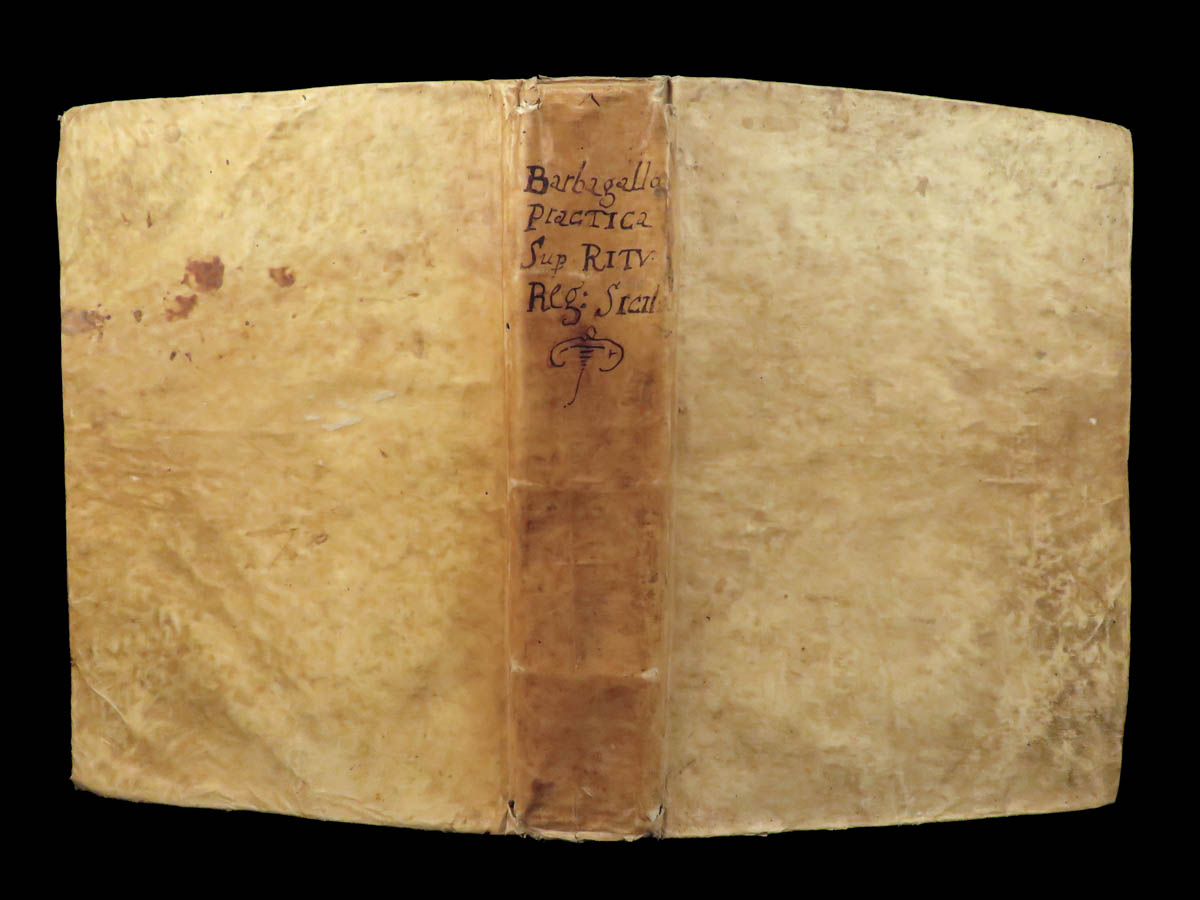 Barbagallo
Practica
Sup RITV:
Reg: SICIL